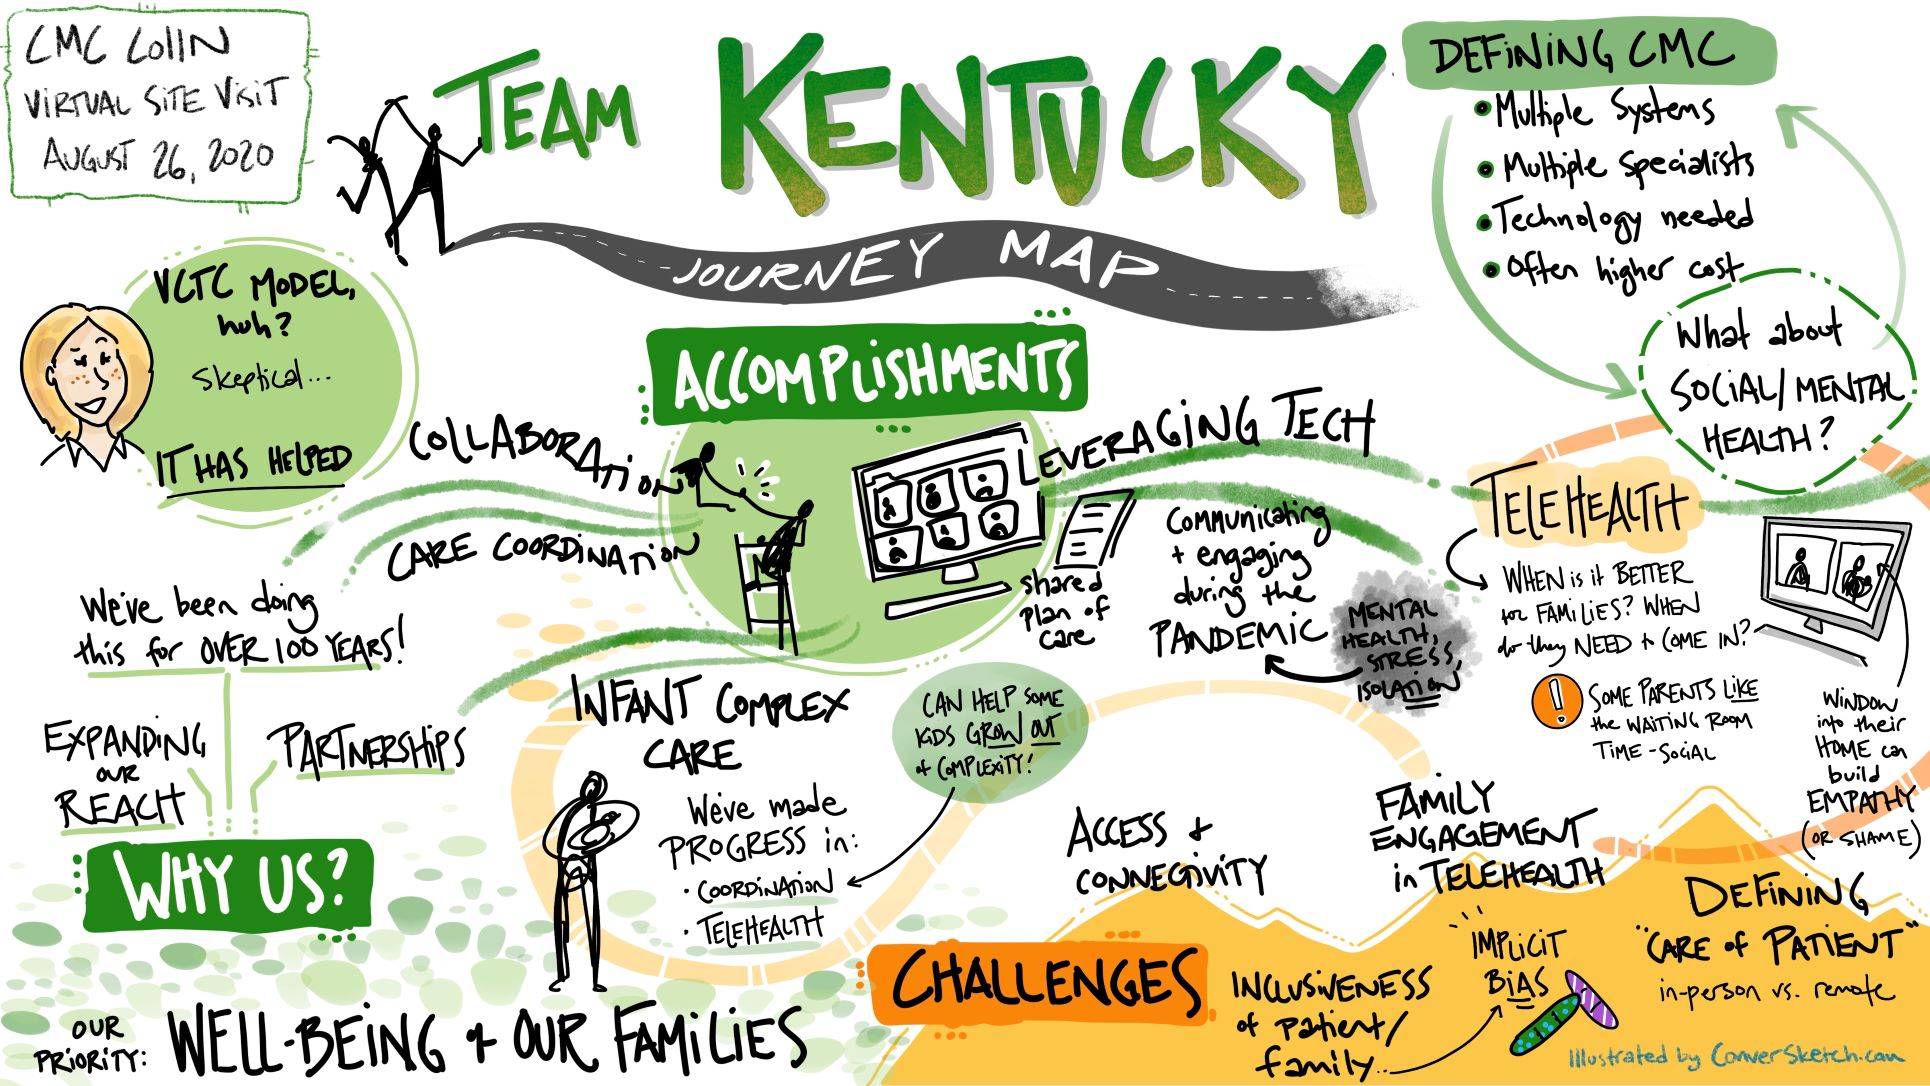 CMC CoIIN
VIRTUAL SITE VISIT
AUGUST 26, 2020
TEAM KENTUCKY
JOURNEY MAP
DEFINING CMC
• Multiple Systems
• Multiple Specialists
• Technology needed
• Often higher cost
What about
SOCIAL/MENTAL
HEALTH?
VCTC MODEL,
huh?
Skeptical...
IT HAS HELPED
ACCOMPLISHMENTS
COLLABORATION
CARE COORDINATION
LEVERAGING TECH
shared
plan of
care
Communicating
+ engaging
during the
PANDEMIC
MENTAL
HEALTH,
STRESS,
ISOLATION
TELEHEALTH
WHEN is it BETTER
for FAMILIES? WHEN
do they NEED to COME IN?
! SOME PARENTS LIKE
the WAITING ROOM
TIME - SOCIAL
WINDOW
into their
HOME can
build
EMPATHY
(OR SHAME)
We've been doing
this for OVER 100 YEARS!
EXPANDING
our
REACH
PARTNERSHIPS
WHY US?
INFANT COMPLEX
CARE
We've made
PROGRESS in:
• COORDINATION
• TELEHEALTH
CAN HELP SOME
KIDS GROW OUT
of COMPLEXITY!
OUR
PRIORITY: WELL-BEING + OUR FAMILIES
CHALLENGES
ACCESS +
CONNECTIVITY
FAMILY
ENGAGEMENT
in TELEHEALTH
INCLUSIVENESS
of patient/
family...
IMPLICIT
BIAS
DEFINING
"CARE of PATIENT"
in-person vs. remote
Illustrated by ConverSketch.com